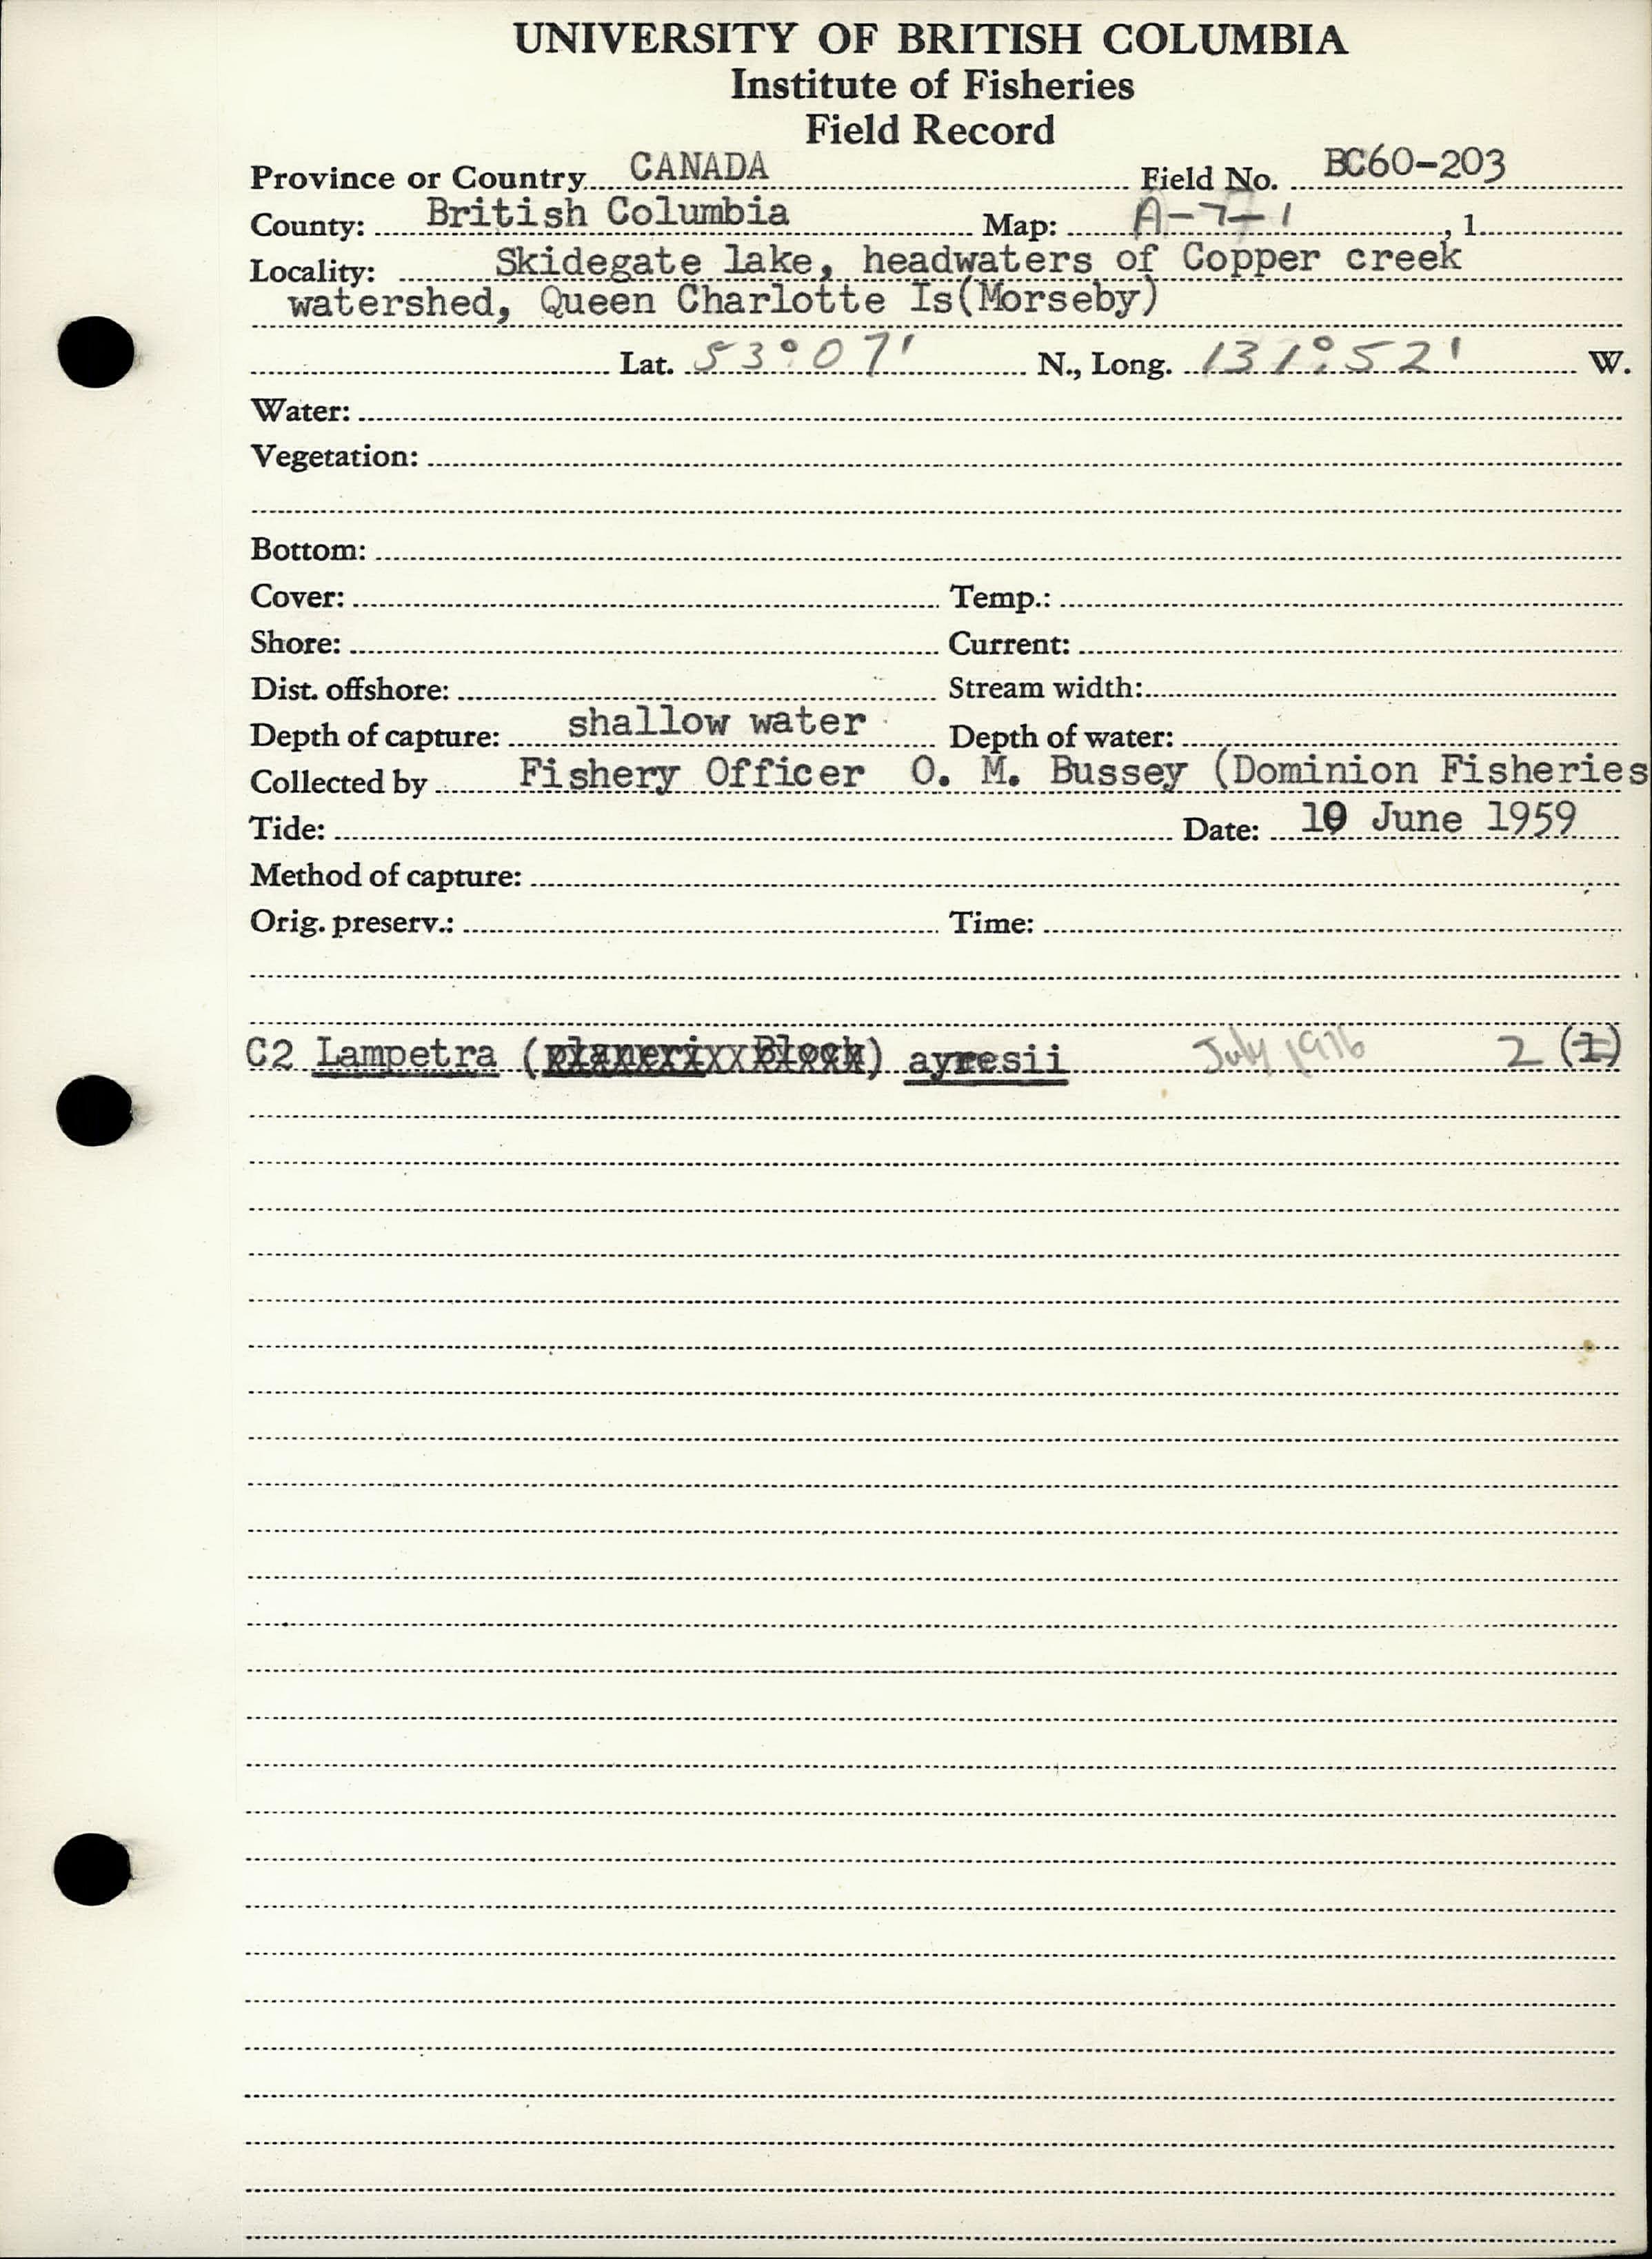 UNIVERSITY OF BRITISH COLUMBIA
Institute of Fisheries
Field Record
Province or Country CANADA Field No. BC60-203
County: British Columbia Map: A-7-1, 1
Locality: Skidegate lake, headwaters of Copper creek
watershed, Queen Charlotte Is(Morseby)
Lat. 53°07' N., Long. 131°52' W.
Water:
Vegetation:
Bottom:
Cover: Temp.:
Shore: Current:
Dist. offshore: Stream width:
Depth of capture: shallow water Depth of water:
Collected by Fishery Officer O. M. Bussey (Dominion Fisheries
Tide: Date: 10 June 1959
Method of capture:
Orig. preserv.: Time:
C2 Lampetra (planeri Bloch) ayresii July 1976 2 (1)